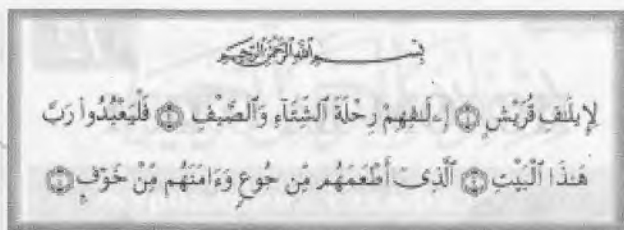 بِسْمِ اللَّهِ الرَّحْمَٰنِ الرَّحِيمِ
لِإِيلَٰفِ قُرَيْشٍ ۝١ إِۦلَٰفِهِمْ رِحْلَةَ ٱلشِّتَآءِ وَٱلصَّيْفِ ۝٢ فَلْيَعْبُدُوا۟ رَبَّ
هَٰذَا ٱلْبَيْتِ ۝٣ ٱلَّذِىٓ أَطْعَمَهُم مِّن جُوعٍ وَءَامَنَهُم مِّنْ خَوْفٍۭ ۝٤